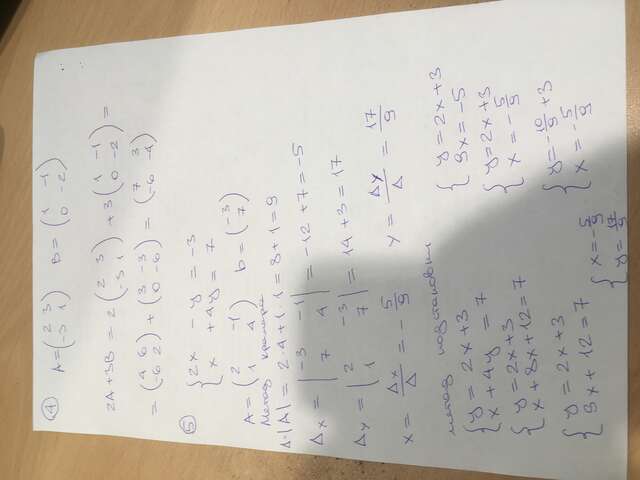 ④ A = ( 2 3 ; -3 1 )   B = ( 1 -1 ; 0 -2 )
2A + 3B = 2 ( 2 3 ; -3 1 ) + 3 ( 1 -1 ; 0 -2 ) =
= ( 4 6 ; -6 2 ) + ( 3 -3 ; 0 -6 ) = ( 7 3 ; -6 -4 )
⑤ { 2x - y = -3
x + 4y = 7
A = ( 2 -1 ; 1 4 )   b = ( -3 ; 7 )
Метод Крамера
Δ·|A| = 2·4 + 1·1 = 8 + 1 = 9
Δx = | -3 -1 ; 7 4 | = -12 + 7 = -5
Δy = | 2 -3 ; 1 7 | = 14 + 3 = 17
x = Δx/Δ = - 5/9   y = Δy/Δ = 17/9
метод подстановки
{ y = 2x + 3
x + 4y = 7
{ y = 2x + 3
x + 8x + 12 = 7
{ y = 2x + 3
9x + 12 = 7
{ y = 2x + 3
9x = -5
{ y = 2x + 3
x = - 5/9
{ y = - 10/9 + 3
x = - 5/9
{ x = - 5/9
y = 17/9